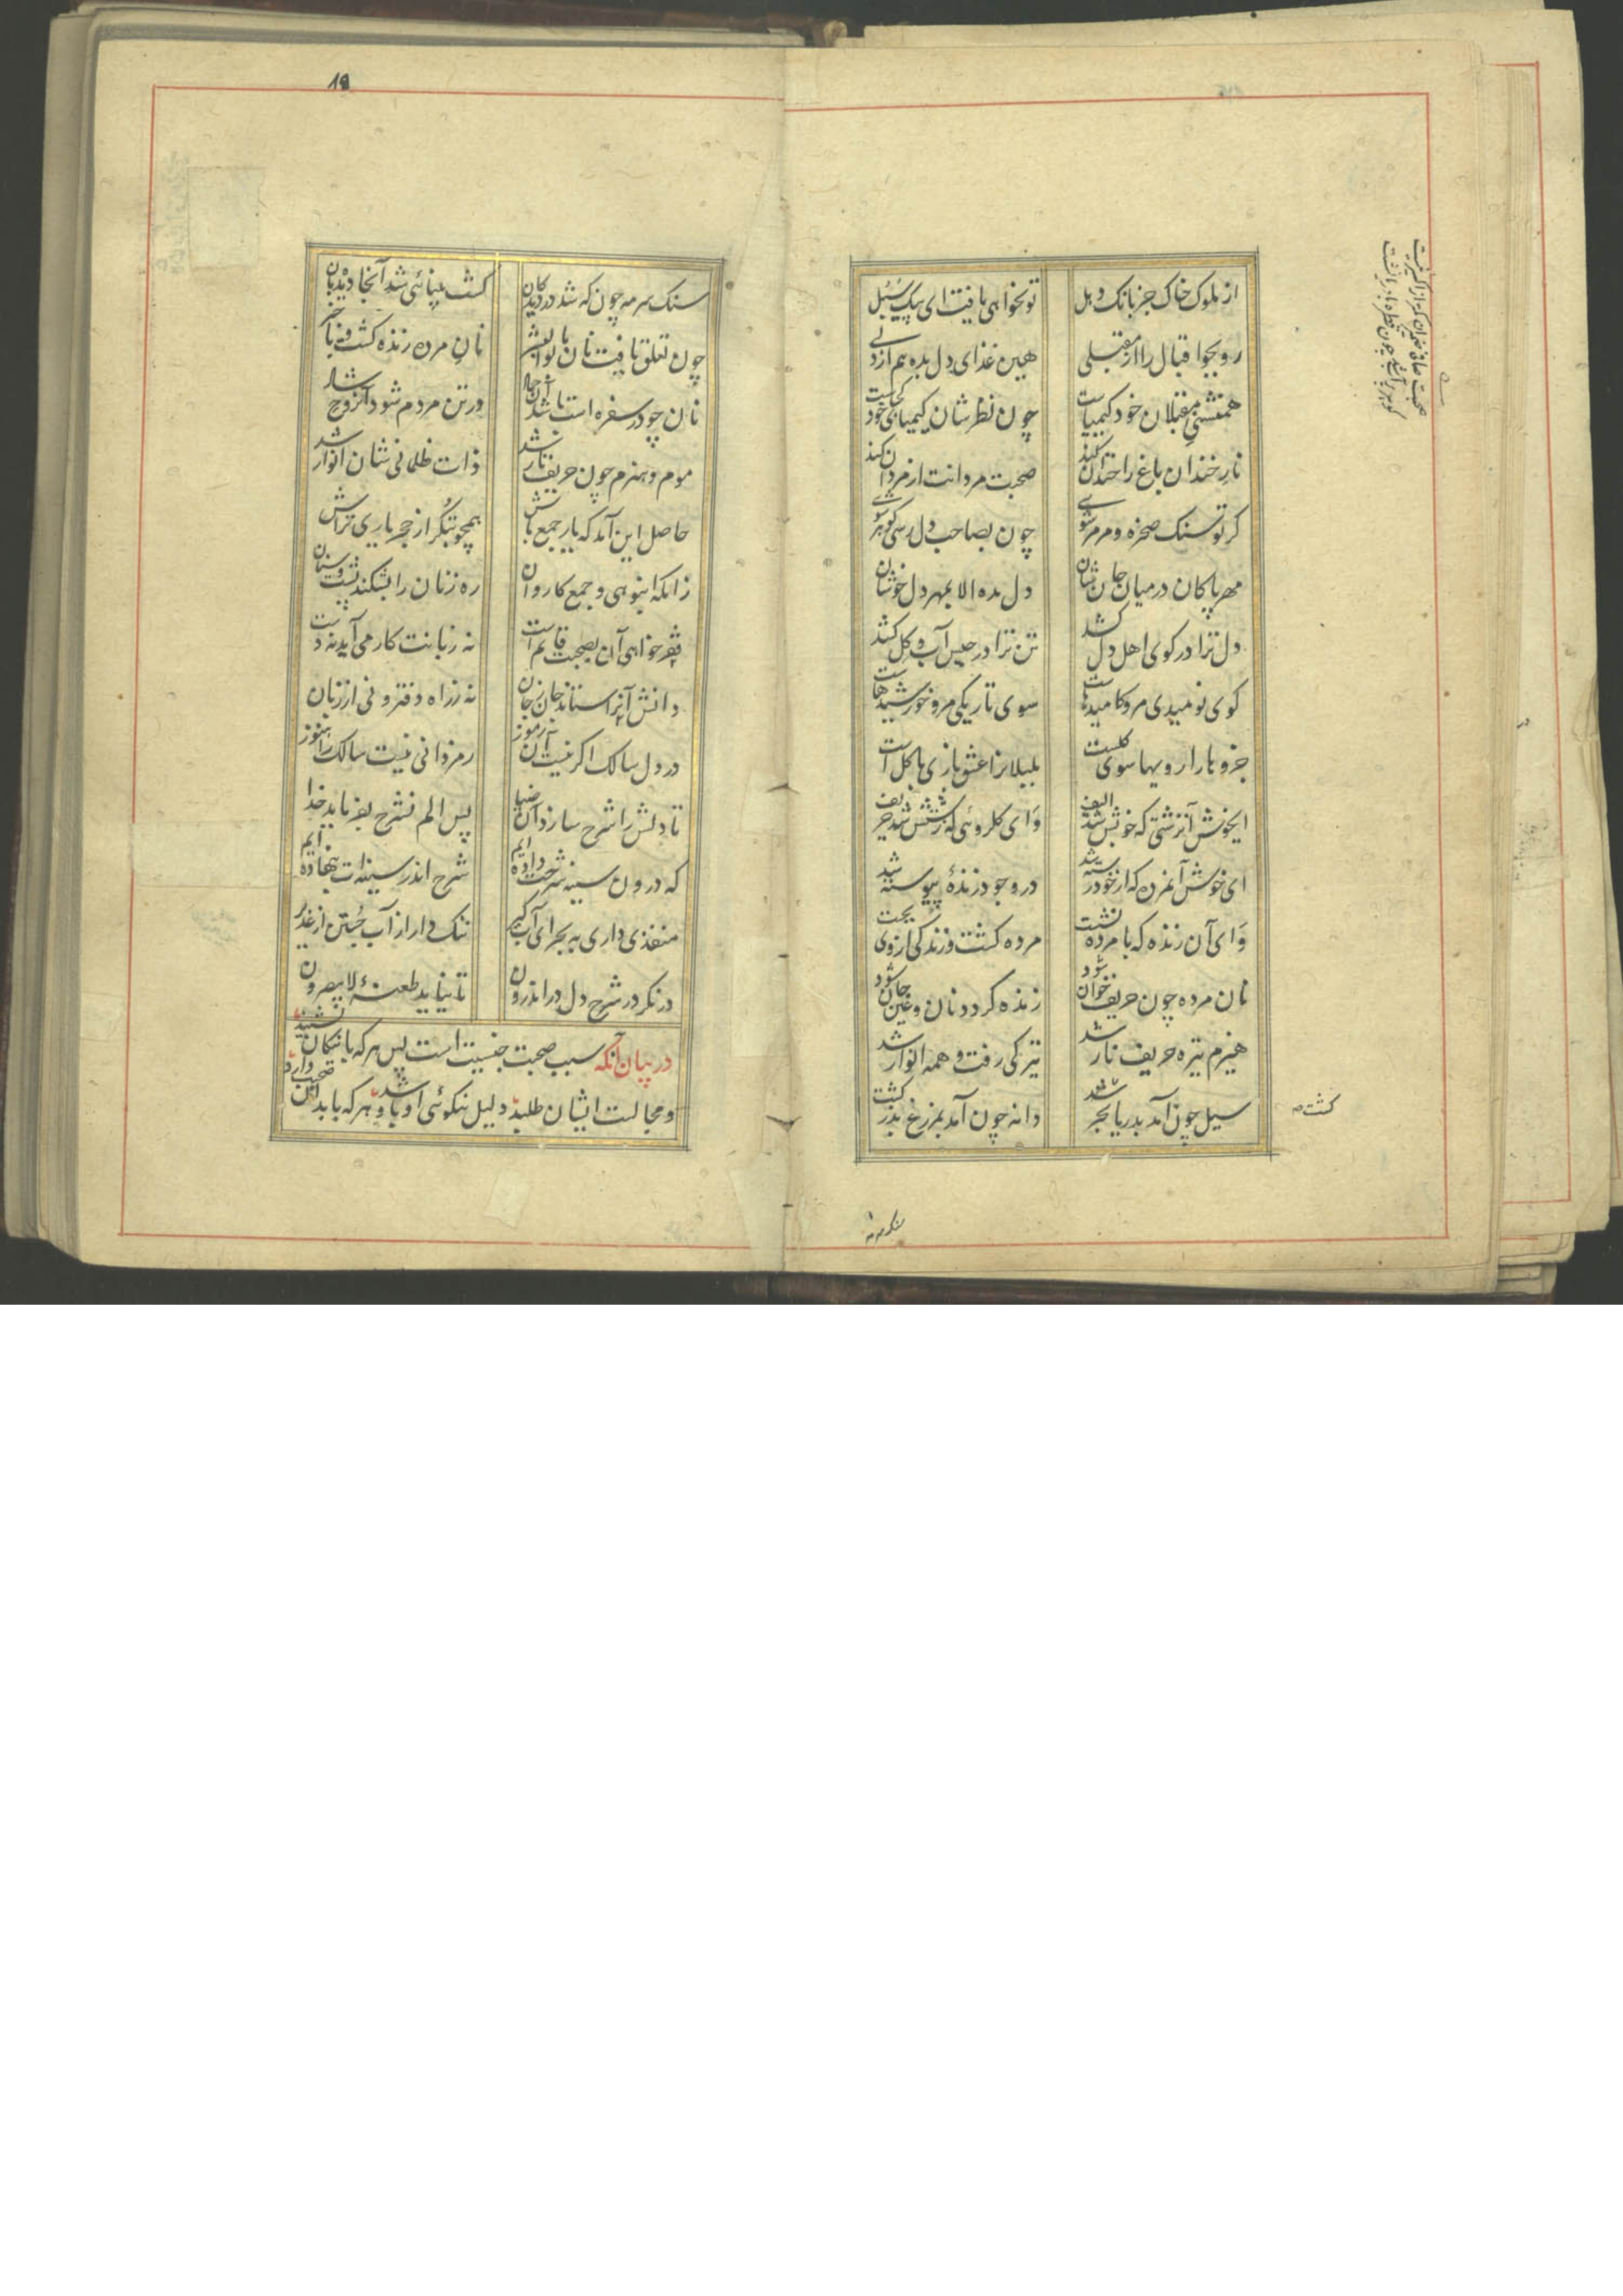 از ملوک خاک جز بانک دهل تو نخواهی یافت ای پیک سبل
رو بجو اقبال را از مقبلی هین غذای دل بده هم از دلی
همنشینی مقبلان خود کیمیاست چون نظرشان کیمیای خود کجاست
نار خندان باغ را خندان کند صحبت مردانت از مردان کند
کر تو سنک صخره و مرمر شوی چون بصاحب دل رسی کوهر شوی
مهر پاکان درمیان جان نشان دل مده الا بمهر دل خوشان
دل ترا در کوی اهل دل کشد تن ترا در حبس آب و کل کشد
کوی نومیدی مرو کامیدهاست سوی تاریکی مرو خورشیدهاست
جزوها را رویها سوی کلست بلبلانرا عشق بازی با کل است
ایخوش آنزشتی که خوبش شد الیف وای کلروئی که زشتش شد حریف
ای خوش آنمرد که از خود رسته شد در وجود زندهٔ پیوسته شد
وای آن زنده که با مرده نشست مرده کشت و زندکی از وی بجست
نان مرده چون حریف خوان شود زنده کردد نان و عین جان شود
هیزم تیره حریف نار شد تیرکی رفت و همه انوار شد
سیل چون آمد بدریا بحر شد دانه چون آمد بمزرع بذر کشت
کشت
سنک سرمه چون که شد در دیدکان کشت بینائی شد آنجا دیدبان
چون تعلق یافت نان با بوالبشر نان مرده زنده کشت و با خبر
نان چو در سفره است باشد آن جماد در تن مردم شود او روح شاد
موم و هیزم چون حریف نار شد ذات ظلمانی شان انوار شد
حاصل این آمد که یار جمع باش همچو بتکر از حجر یاری تراش
زانکه انبوهی و جمع کاروان ره زنان را بشکند پشت و سنان
فقر خواهی آن بصحبت قایم است نه زبانت کار می آید نه دست
دانش آنرا ستاند جان ز جان نه ز راه دفتر و نی از زبان
در دل سالک اکر نیست آن رموز رمزدانی نیست سالک را هنوز
تا دلش را شرح سازد آن ضیا پس الم نشرح بفرماید خدا
که درون سینه شرحت داده ایم شرح اندر سینه ات بنهاده ایم
منفذی داری به بحر ای آب کیر ننک دار از آب جستن از غدیر
در نکر در شرح دل در اندرون تا نیاید طعنهٔ لا یبصرون
در بیان آنکه سبب صحبت جنسیت است پس هرکه با نیکان نشیند
و مجالست ایشان طلبد دلیل نیکوئی او باشد و هرکه با بدان صحبت دارد